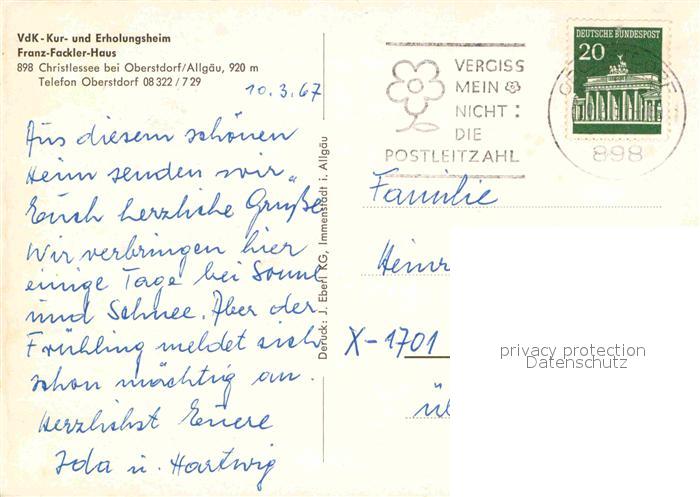 VdK-Kur- und Erholungsheim
Franz-Fackler-Haus
898 Christlessee bei Oberstdorf/Allgäu, 920 m
Telefon Oberstdorf 08 322 / 7 29
10.3.67
Aus diesem schönen
Heim senden wir
Euch herzliche Grüße
Wir verbringen hier
einige Tage bei Sonne
und Schnee. Aber der
Frühling meldet sich
schon mächtig an.
Herzlichst Euere
Ida u. Hartwig
Deruck: J. Eberl KG, Immenstadt i. Allgäu
VERGISS
MEIN
NICHT:
DIE
POSTLEITZAHL
DEUTSCHE BUNDESPOST
20
898
Familie
Heinr
X-1701
ü
privacy protection
Datenschutz